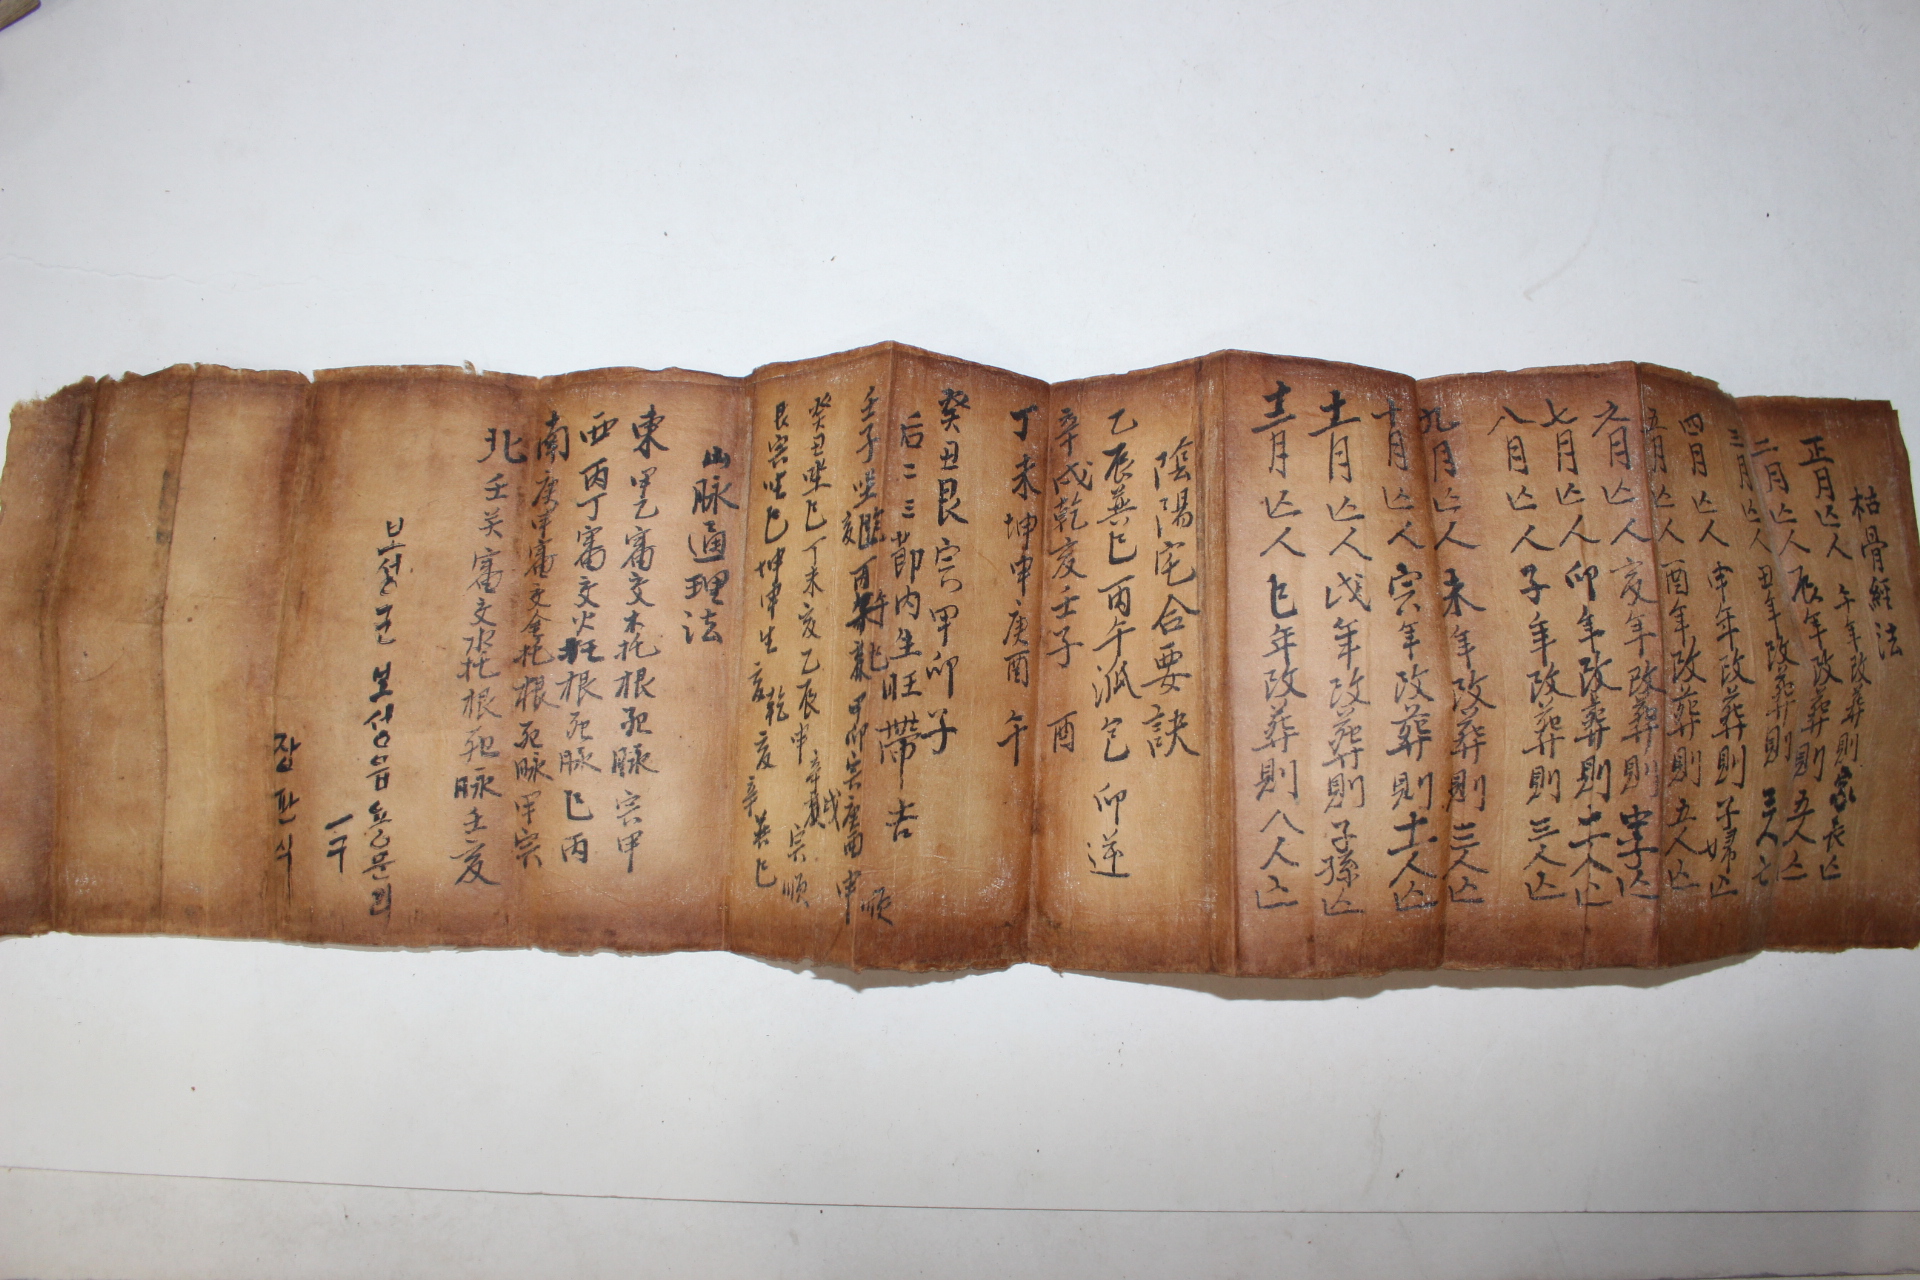 枯骨經法
正月亾人 午年改葬則 家長亾
二月亾人 辰年改葬則 五人亾
三月亾人 丑年改葬則 三人亡
四月亾人 申年改葬則 子婦亾
五月亾人 酉年改葬則 五人亾
六月亾人 亥年改葬則 亾
七月亾人 卯年改葬則 士人亾
八月亾人 子年改葬則 三人亾
九月亾人 未年改葬則 三人亾
十月亾人 年改葬則 士人亾
十一月亾人 戌年改葬則 子孫亾
十二月亾人 巳年改葬則 八人亾
陰陽宅合要訣
乙辰巽巳丙午 卯逆
辛戌乾亥壬子 酉
丁未坤申庚酉 午
癸丑艮 甲卯 子
后二三節內生旺帶吉
壬子坐 甲卯 庚酉申順
癸丑坐巳丁未亥乙辰申 順
艮 坐巳坤申生亥乾亥辛巽巳
山脉通理法
東 甲乙 交木托根 脉 甲
西 丙丁 交火托根 脉 巳丙
南 庚 交金托根 脉
北 壬 交水托根 脉 壬亥
보성군 보성읍 용문리
一구
장판식